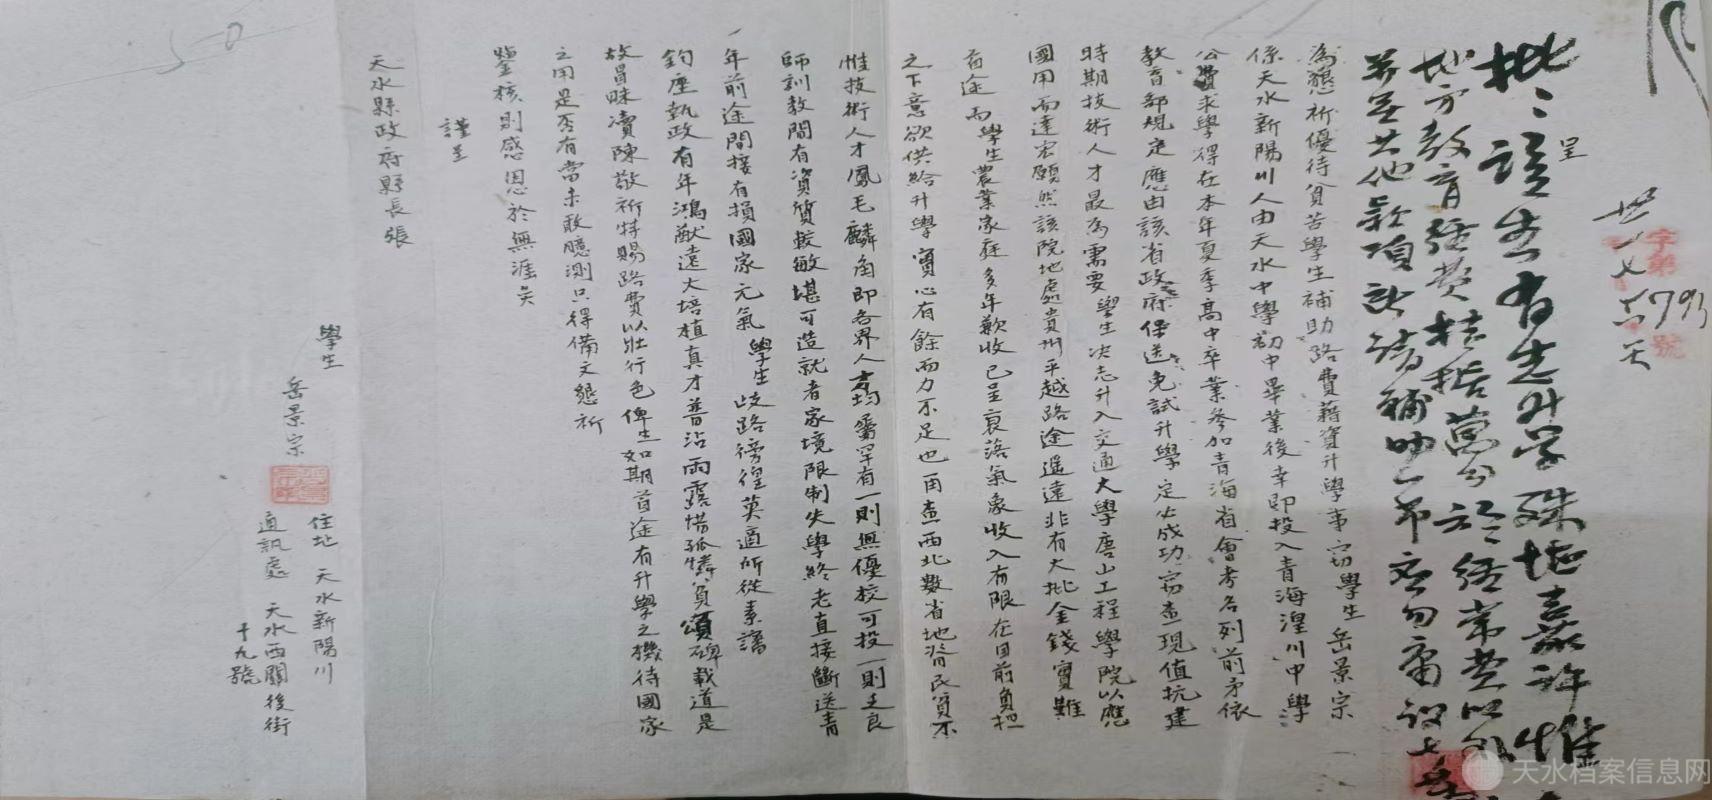 呈
批：該生有志升学殊堪嘉許惟
地方教育经费拮据萬分於经常费以外
並無其他款项所請補助一节应勿庸议
字第 號
793
為懇祈優待貧苦學生補助路費藉資升學事窃學生岳景宗
係天水新陽川人由天水中學初中畢業後幸即投入青海湟川中學
公費求學得在本年夏季高中卒業參加青海省會考名列前矛依
教育部規定應由該省政府保送免試升學定必成功窃查現值抗建
時期技術人才最為需要學生决志升入交通大學唐山工程學院以應
國用而達宏願然該院地處貴州平越路途遥遠非有大批金錢實難
首途而學生農業家庭多年歉收已呈衰落氣象收入有限在目前負担
之下意欲供給升學實心有餘而力不足也再查西北數省地瘠民貧不
惟技術人才鳳毛麟角即各界人才均屬罕有一則無優校可投一則乏良
師訓教間有資質較敏堪可造就者家境限制失學終老直接斷送青
年前途間接有損國家元氣學生歧路徬徨莫適所從素諗
鈞座執政有年鴻猷遠大培植真才普沾雨露惜孤憐貧頌碑載道是
故冒昧瀆陳敬祈特賜路費以壯行色俾生如期首途有升學之機待國家
之用是否有當未敢臆測只得備文懇祈
鑒核則感恩於無涯矣
謹呈
天水縣政府縣長張
學生
岳景宗
住址 天水新陽川
通訊處 天水西關後街
十九號
天水档案信息网